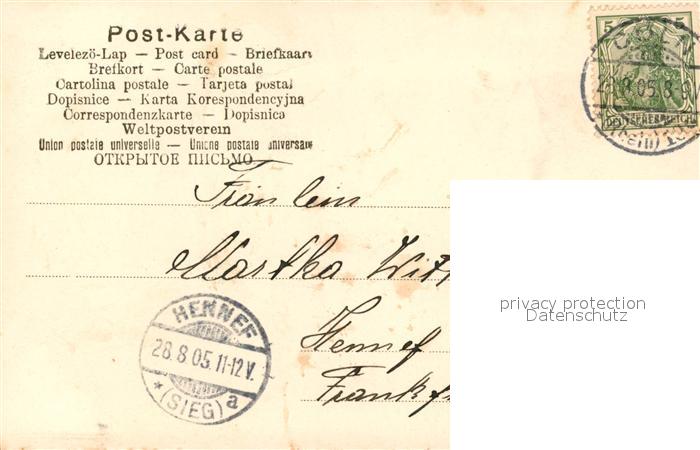 Post-Karte
Levelező-Lap — Post card — Briefkaart
Brefkort — Carte postale
Cartolina postale — Tarjeta postal
Dopisnice — Karta Korespondencyjna
Correspondenzkarte — Dopisnica
Weltpostverein
Union postale universelle — Unione postale universale
ОТКРЫТОЕ ПИСЬМО
5 5
28.8.05.8-9
DEUTSCHES REICH
Fräulein
Martha Witt
Hennef
Frankf
HENNEF
28.8.05.11-12V.
* (SIEG) a
privacy protection
Datenschutz